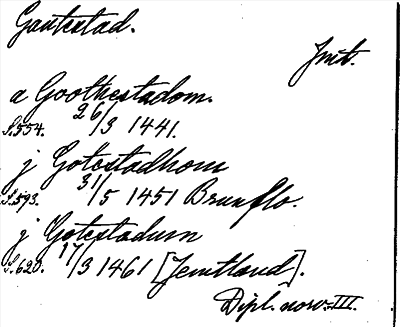 Gautestad.
Jmt.
a Goothestadom.
S.554. 26/3 1441.
j Gotestadhom
S.593. 31/5 1451 Brunflo.
j Gotestadum
S.620. 17/3 1461 [Jemtland].
Dipl. norv. III.